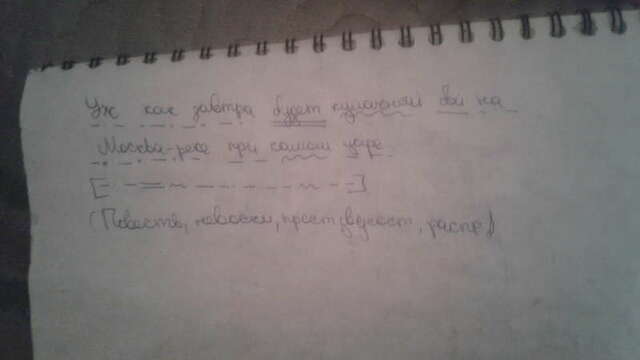 Уж как завтра будет кулачный бой на
Москва-реке при самом царе.
(Повеств, невоскл, прост, двусост, распр)